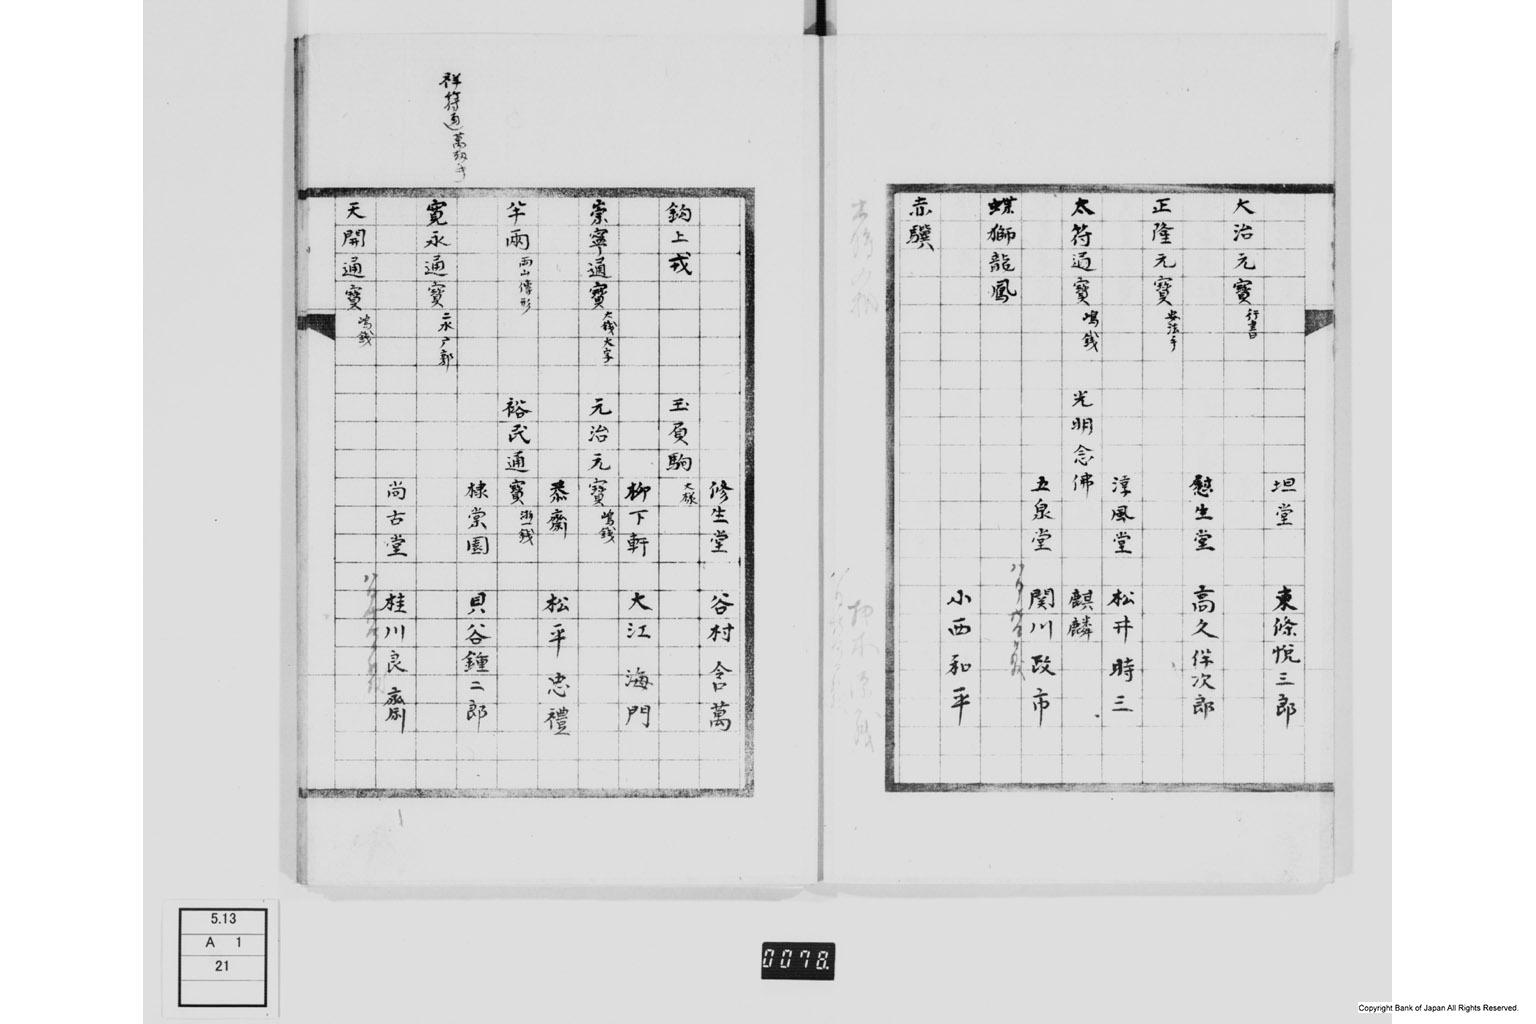 坦堂　東條悦三郎
大治元寶 行書
慰生堂　高久伴次郎
正隆元寶 安法手
淳風堂　松井時三
太符通寶 嶋銭　光明念佛　麒麟
五泉堂　関川政市
蝶獅龍鳳
小西和平
赤驥
修生堂　谷村含萬
鈎上戎　玉屓駒 大様
柳下軒　大江海門
崇寧通寶 大銭大字　元治元寶 嶋銭
恭齋　松平忠禮
半兩 両山傳形　裕民通寶 浙一銭
棣棠園　貝谷鍾二郎
寛永通寶 二水戸郭
祥符通萬
尚古堂　桂川良齋
天開通寶 嶋銭
5.13
A 1
21
0078.
Copyright Bank of Japan All Rights Reserved.